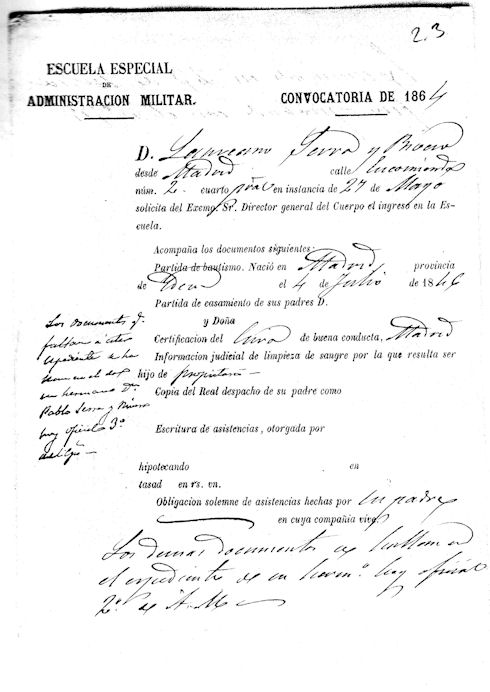 23
ESCUELA ESPECIAL
DE
ADMINISTRACION MILITAR.
CONVOCATORIA DE 1864
D. Laureano Serra y
desde Madrid calle Encomienda
núm. 2 cuarto pral en instancia de 27 de Mayo
solicita del Exemp. Sr. Director general del Cuerpo el ingreso en la Es-
cuela.
Acompaña los documentos siguientes:
Partida de bautismo. Nació en Madrid provincia
de Idem el 4 de Julio de 1846
Partida de casamiento de sus padres D.
y Doña
Certificacion del Cura de buena conducta, Madrid
Informacion judicial de limpieza de sangre por la que resulta ser
hijo de propietario
Copia del Real despacho de su padre como
Escritura de asistencias, otorgada por
hipotecando en
tasad en rs. vn.
Obligacion solemne de asistencias hechas por su padre
en cuya compañia vive
Los documentos q.
faltan á este
espediente
en el de
su hermano Dn.
Pablo Serra y
hoy oficial 3º
Los demas documentos se hallan en
el expediente de su herm.º hoy oficial
2º de A. M.